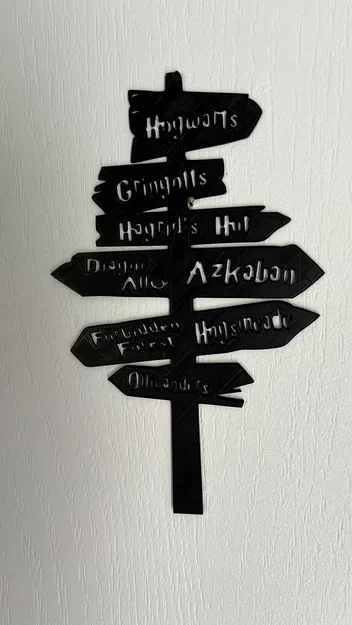 Hogwarts
Gringotts
Hagrid's Hut
Diagon
Alley
Azkaban
Forbidden
Forest
Hogsmeade
Ollivanders